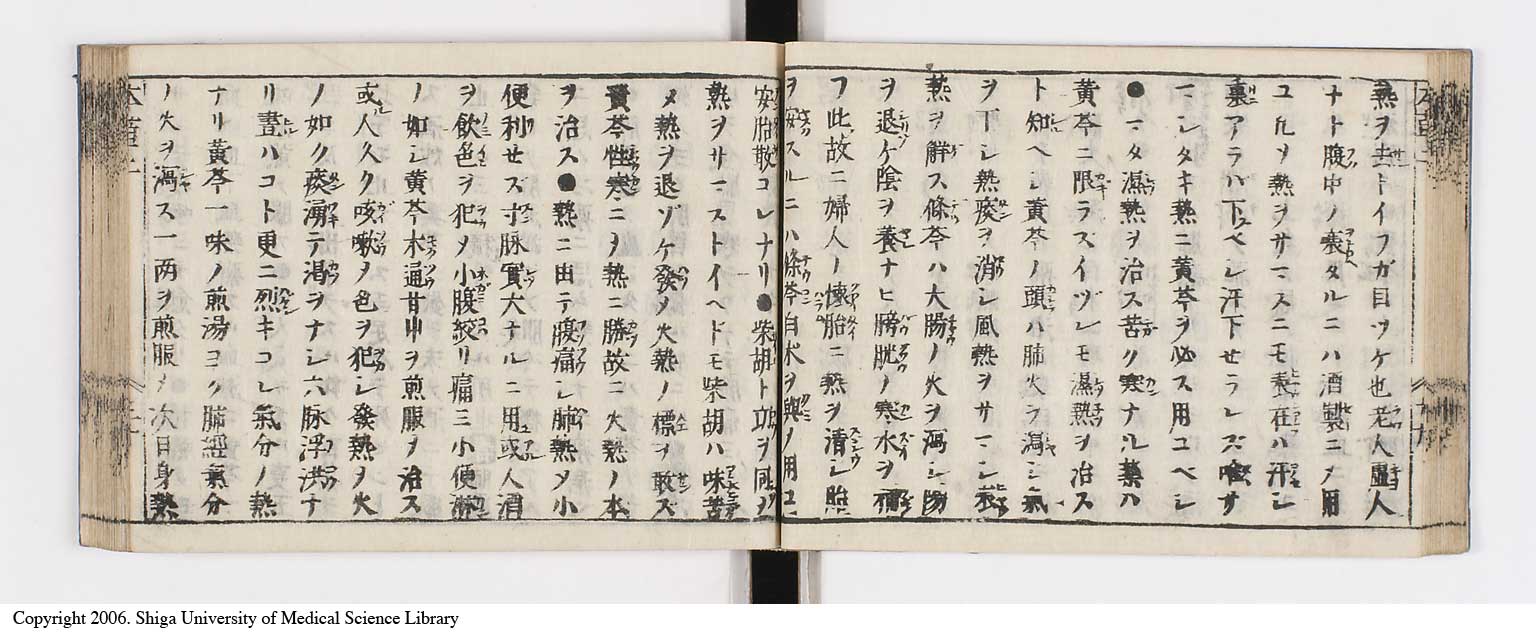 熱ヲ去トイフガ目ツケ也老人虚人
ナト腹中ノ衰タルニハ酒製ニメ用
ユ凡ヲ熱ヲサマスニモ表在ハ汗シ
裏アラハ下ベシ汗下セラレズ サ
マシタキ熱ニ黄芩ヲ必ス用ユベシ
●マタ濕熱ヲ治ス苦ク寒ナル薬ハ
黄芩ニ限ラスイヅレモ濕熱ヲ冶ス
ト知ヘシ黄芩ノ頭ハ肺火ヲ瀉シ氣
ヲ下シ熱痰ヲ消シ風熱ヲサマシ表
熱ヲ解ス條芩ハ大腸ノ火ヲ瀉シ陽
ヲ退ケ陰ヲ養ナヒ膀胱ノ寒水ヲ補
フ此故ニ婦人ノ懐胎ニ熱ヲ清シ胎
ヲ安スルニハ條芩白朮ヲ與ノ用ユ
安胎散コレナリ●柴胡ト功ヲ同ノ
熱ヲサマストイヘドモ柴胡ハ味苦
メ熱ヲ退ゾケ發メ火熱ノ標ヲ散ズ
黄芩性寒ニヲ熱ニ勝故ニ火熱ノ本
ヲ治ス●熱ニ由テ腹痛シ肺熱メ小
便利せズ寸脉實大ナルニ用或人酒
ヲ飲色ヲ犯メ小腹絞リ痛三小便淋
ノ如シ黄芩木通甘中ヲ煎服ヲ治ス
或人久ク咳嗽メ色ヲ犯レ發熱ヲ火
ノ如ク痰湧テ渇ヲナシ六脉浮洪ナ
リ晝ハコト更ニ烈キコレ氣分ノ熱
ナリ黄芩一味ノ煎湯ヨク肺經氣分
ノ火ヲ瀉ス一两ヲ煎服メ次日身熱
Copyright 2006. Shiga University of Medical Science Library